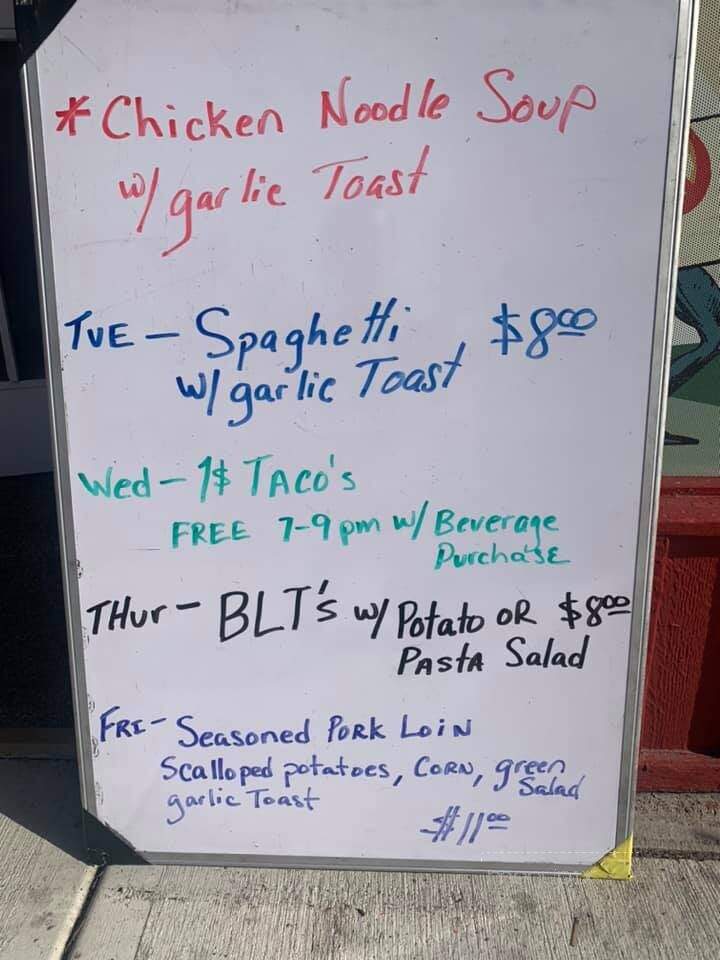 * Chicken Noodle Soup
w/ garlic Toast
TUE - Spaghetti $8.00
w/ garlic Toast
Wed - 1$ TACO's
FREE 7-9 pm w/ Beverage
Purchase
THur - BLT's w/ Potato OR $8.00
PASTA Salad
FRI - Seasoned PORK LOIN
Scalloped potatoes, CORN, green
Salad
garlic Toast
$11.00